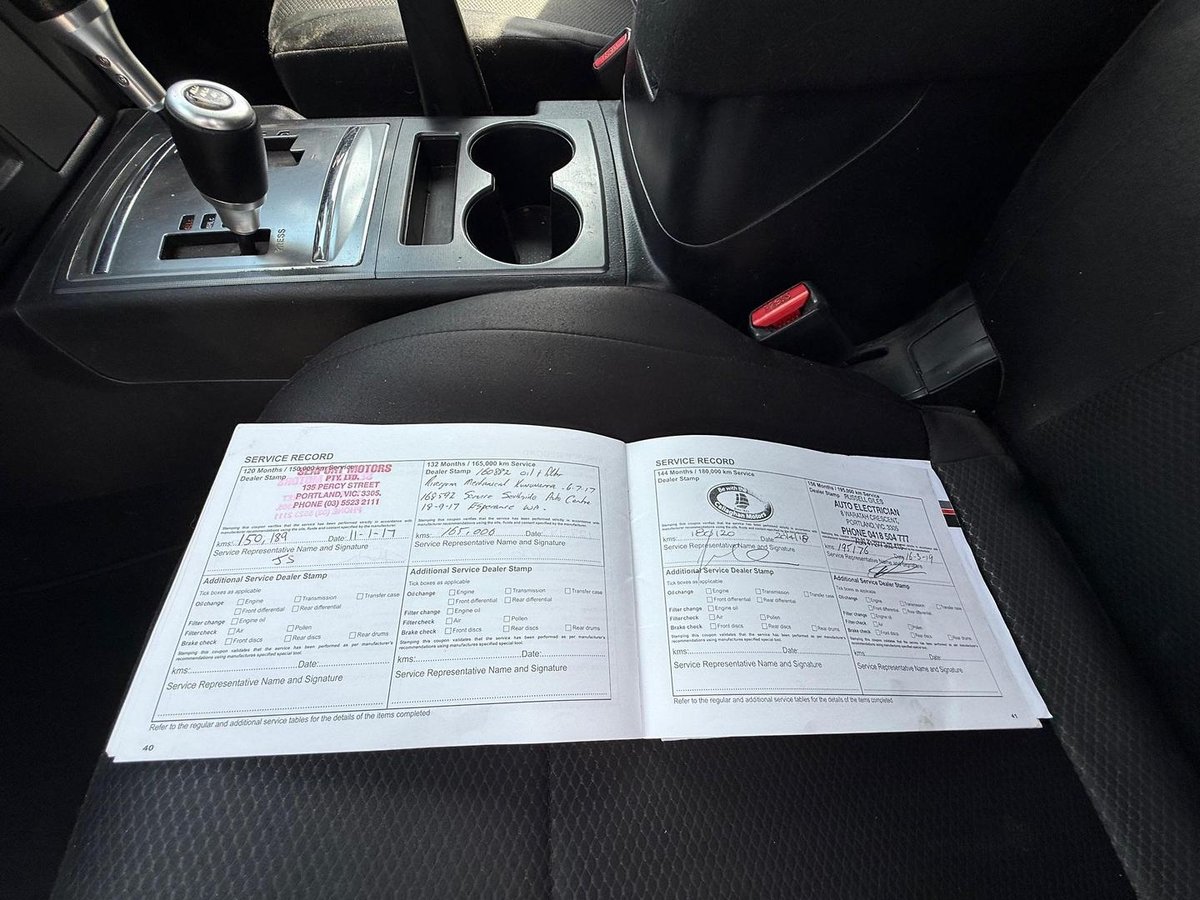 PRESS
SERVICE RECORD
120 Months / 150,000 km Service
Dealer Stamp
SEAPORT MOTORS
PTY. LTD.
135 PERCY STREET
PORTLAND, VIC. 3305.
PHONE (03) 5523 2111
Stamping this coupon verifies that the service has been performed strictly in accordance with
manufacturers recommendations using the oils, fluids and content specified by the manufacturer.
kms: 150,189 Date: 11-1-17
Service Representative Name and Signature
JS
Additional Service Dealer Stamp
Tick boxes as applicable
Oil change Engine Transmission Transfer case
Front differential Rear differential
Filter change Engine oil
Filter check Air Pollen
Brake check Front discs Rear discs Rear drums
Stamping this coupon validates that the service has been performed as per manufacturer's
recommendations using manufactures specified special tool.
kms: Date:
Service Representative Name and Signature
132 Months / 165,000 km Service
Dealer Stamp 160882 oil + filter
Mechanical Kununurra 6-7-17
168592 Service Southside Auto Centre
18-9-17 Esperance WA.
kms: 165,000 Date:
Service Representative Name and Signature
Additional Service Dealer Stamp
Tick boxes as applicable
Oil change Engine Transmission Transfer case
Front differential Rear differential
Filter change Engine oil
Filter check Air Pollen
Brake check Front discs Rear discs Rear drums
Stamping this coupon validates that the service has been performed as per manufacturer's
recommendations using manufactures specified special tool.
kms: Date:
Service Representative Name and Signature
Refer to the regular and additional service tables for the details of the items completed
40
SERVICE RECORD
144 Months / 180,000 km Service
Dealer Stamp
Motors
kms: 180120 Date:
Service Representative Name and Signature
Additional Service Dealer Stamp
Tick boxes as applicable
Oil change Engine Transmission Transfer case
Front differential Rear differential
Filter change Engine oil
Filter check Air Pollen
Brake check Front discs Rear discs Rear drums
Stamping this coupon validates that the service has been performed as per manufacturer's
recommendations using manufactures specified special tool.
kms: Date:
Service Representative Name and Signature
156 Months / 195,000 km Service
Dealer Stamp RUSSELL GILES
AUTO ELECTRICIAN
CRESCENT,
PORTLAND VIC. 3305
PHONE 0418 504 777
kms: 195176 16-3-19
Service Representative Name and Signature
Additional Service Dealer Stamp
Tick boxes as applicable
Oil change Engine Transmission Transfer case
Front differential Rear differential
Filter change Engine oil
Filter check Air Pollen
Brake check Front discs Rear discs Rear drums
Stamping this coupon validates that the service has been performed as per manufacturer's
recommendations using manufactures specified special tool.
kms: Date:
Service Representative Name and Signature
Refer to the regular and additional service tables for the details of the items completed
41